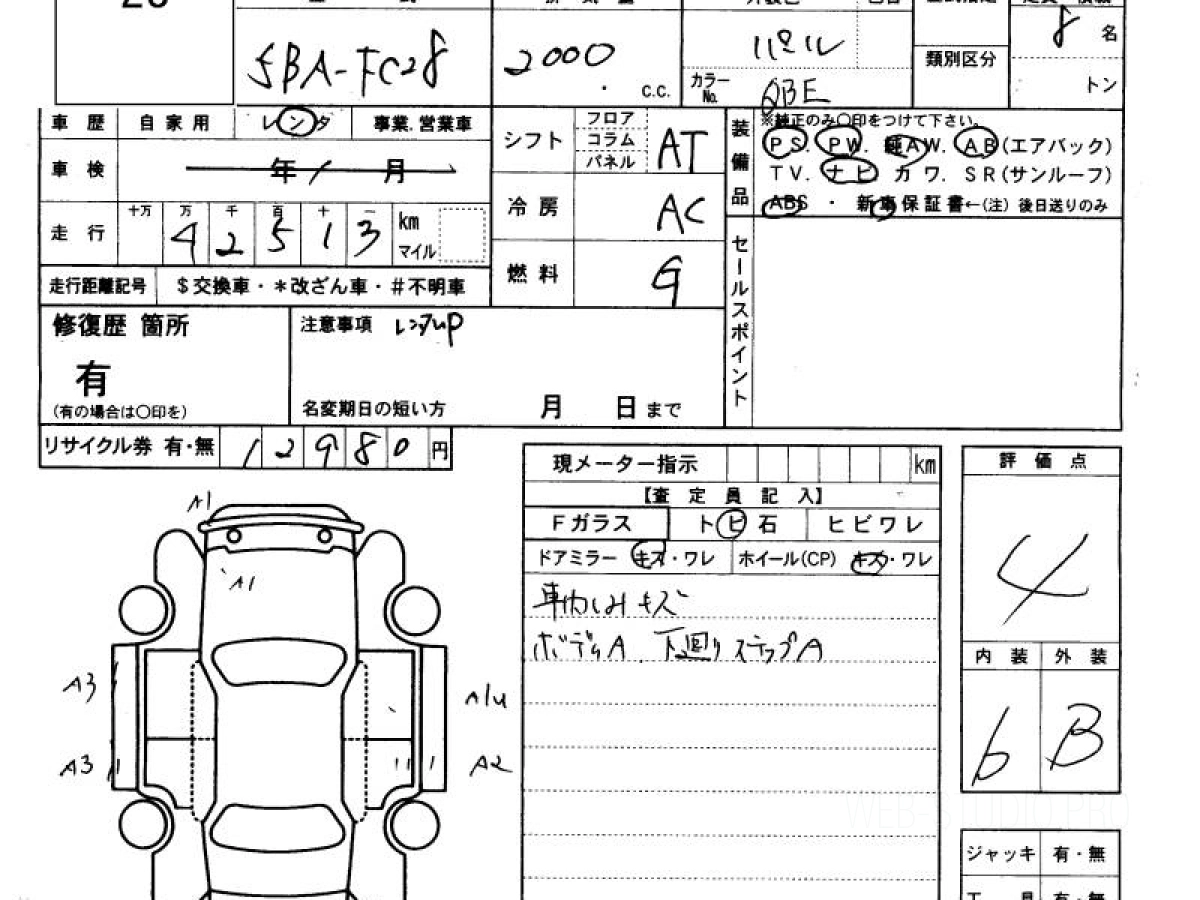 5BA-FC28
2000
c.c.
パール
カラーNo. QBE
類別区分
8 名
トン
車歴 自家用 レンタ 事業.営業車
車検 年 月
走行
十万 万 千 百 十 一
4 2 5 1 3 km マイル
走行距離記号 $交換車・*改ざん車・#不明車
シフト フロア コラム パネル AT
冷房 AC
燃料 G
装備品
※純正のみ○印をつけて下さい。
PS. PW. 純AW. AB(エアバック)
TV. ナビ カワ. SR(サンルーフ)
ABS ・ 新車保証書←(注) 後日送りのみ
セールスポイント
修復歴 箇所
有
(有の場合は○印を)
注意事項 レンタup
名変期日の短い方 月 日まで
リサイクル券 有・無 1 2 9 8 0 円
現メーター指示 km
【査定員記入】
Fガラス トビ石 ヒビワレ
ドアミラー キズ・ワレ ホイール(CP) キズ・ワレ
キズ
ボディA 下廻り ステップA
評価点
4
内装 外装
b B
ジャッキ 有・無
工具 有・無
A1
A1
A3
A1u
A3
A2
WEB-STUDIO.PRO